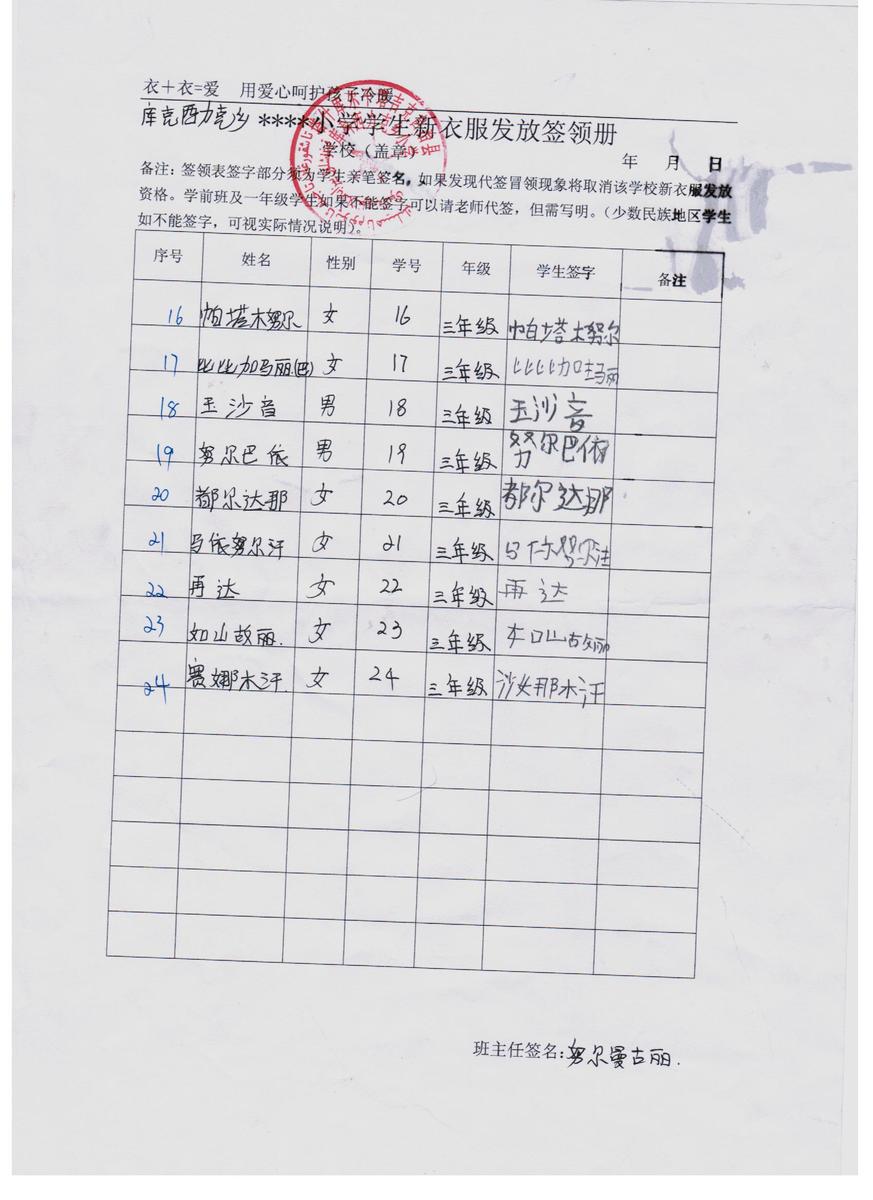 衣+衣=爱 用爱心呵护孩子冷暖
库克西力克乡 ****小学学生新衣服发放签领册
学校（盖章）
年 月 日
备注：签领表签字部分须为学生亲笔签名，如果发现代签冒领现象将取消该学校新衣服发放
资格。学前班及一年级学生如果不能签字可以请老师代签，但需写明。（少数民族地区学生
如不能签字，可视实际情况说明）。
序号 姓名 性别 学号 年级 学生签字 备注
16 帕塔木努尔 女 16 三年级 帕塔木努尔
17 比比加马丽(巴) 女 17 三年级 比比加玛丽
18 玉沙音 男 18 三年级 玉沙音
19 努尔巴依 男 19 三年级 努尔巴依
20 都尔达那 女 20 三年级 都尔达那
21 马依努尔汗 女 21 三年级
22 再达 女 22 三年级 再达
23 如山故丽. 女 23 三年级
24 赛娜木汗. 女 24 三年级
班主任签名：努尔曼古丽.